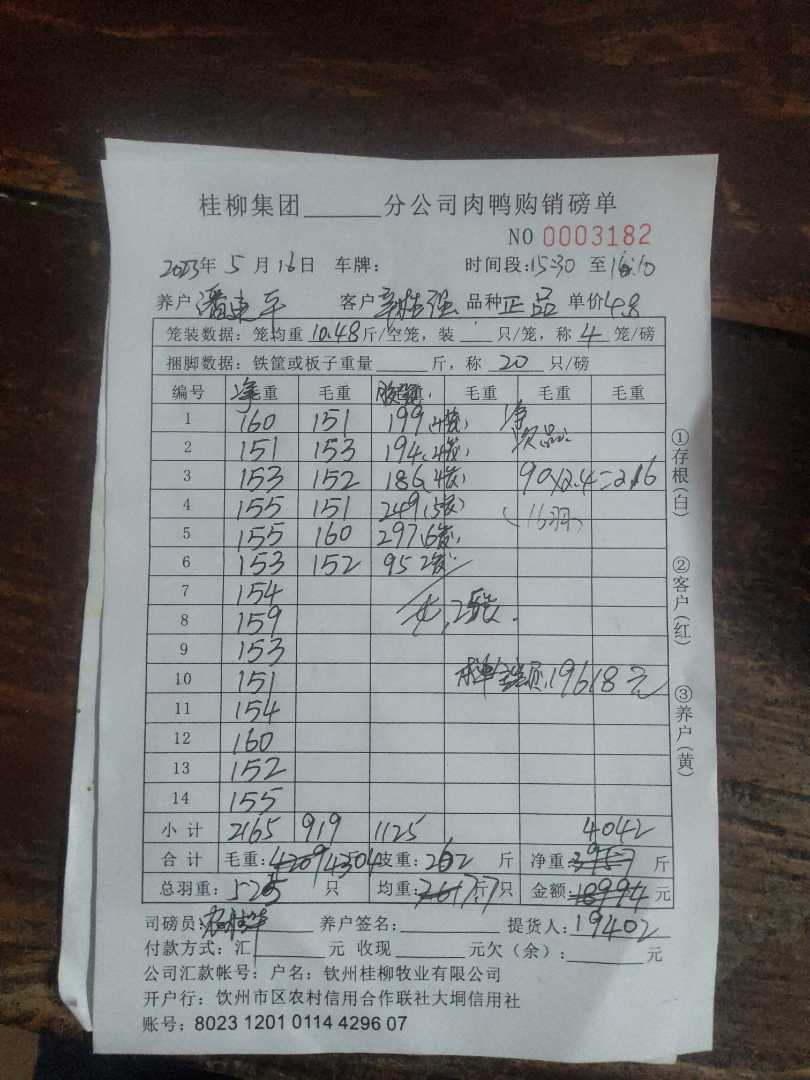 桂柳集团______分公司肉鸭购销磅单
NO 0003182
2023年 5 月 16日 车牌： 时间段：15:30 至 16:10
养户 客户 品种 正品 单价 4.8
笼装数据：笼均重 10.48 斤/空笼，装 ___ 只/笼，称 4 笼/磅
捆脚数据：铁筐或板子重量 _____ 斤，称 20 只/磅
编号 净重 毛重 毛重 毛重 毛重
1 160 151 199
2 151 153 194 次品
3 153 152 186 90×2.4=216
4 155 151 249 (16羽)
5 155 160 297
6 153 152 95
7 154
8 159
9 153
10 151 19618元
11 154
12 160
13 152
14 155
小计 2165 919 1125 4042
合计 毛重：4209 4304 皮重：262 斤 净重：3957 斤
总羽重：525 只 均重：7.7 斤/只 金额：18994 元
司磅员： 养户签名： 提货人：19402
付款方式：汇______元 收现______元欠（余）：______元
公司汇款帐号：户名：钦州桂柳牧业有限公司
开户行：饮州市区农村信用合作联社大垌信用社
账号：8023 1201 0114 4296 07
①存根(白)
②客户(红)
③养户(黄)